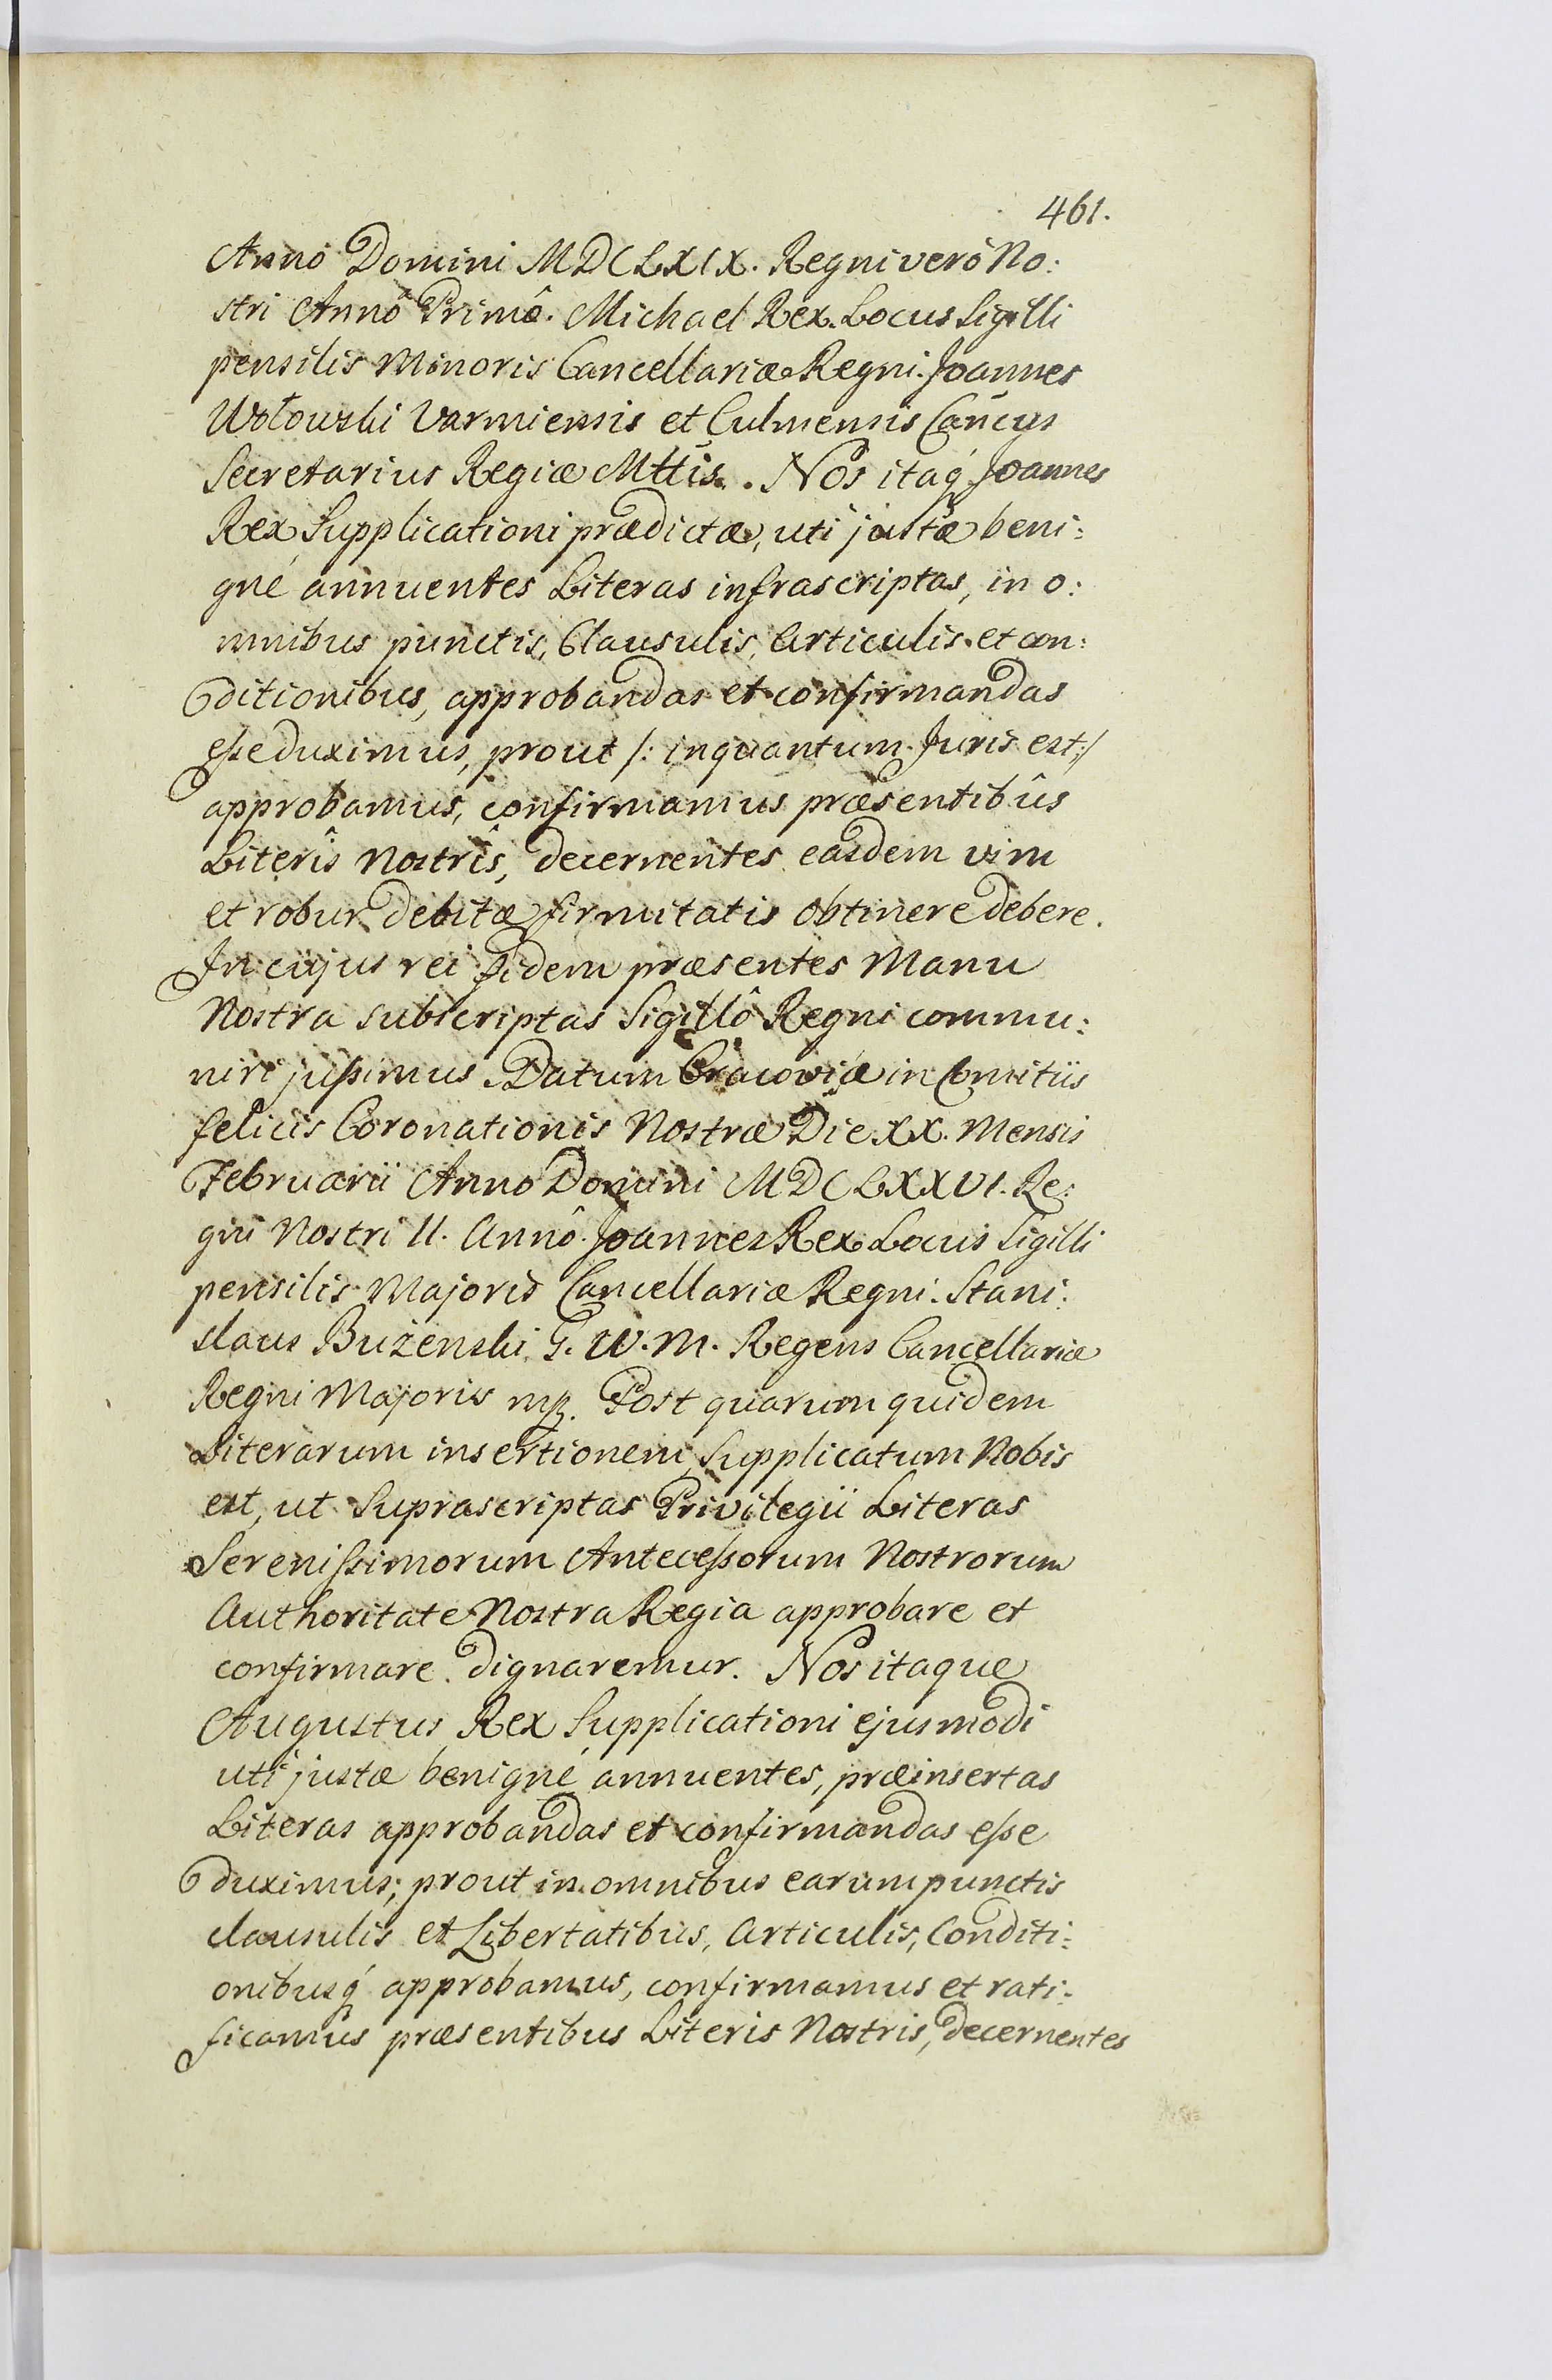 461.
Anno Domini MDCLXIX. Regni verò No:
stri Annô Primô. Michael Rex. Locus Sigilli
pensilis Minoris Cancellariæ Regni. Joannes
Wołowski Varmiensis et Culmensis Cañcus
Secretarius Regiæ Mttis. Nos itaq́ Joannes
Rex Supplicationi prædictæ, uti justæ beni:
gné annuentes Literas infrascriptas, in o:
mnibus punctis, Clausulis, Articulis et con:
ditionibus, approbandas et confirmandas
eſse duximus, prout /: inquantum Juris est :/
approbamus, confirmamus præsentibûs
Literîs Nostrîs, decernentes easdem vim
et robur debitæ firmitatis obtinere debere.
In cujus rei fidem præsentes Manu
Nostra subscriptas Sigillô Regni commu:
niri juſsimus. Datum Cracoviæ in Comitiis
felicis Coronationis Nostræ Die XX. Mensis
Februarii Anno Domini MDCLXXVI. Re:
gni Nostri II. Annô. Joannes Rex Locus Sigilli
pensilis Majoris Cancellariæ Regni. Stani:
slaus Bużenski G. W. M. Regens Cancellariæ
Regni Majoris mp. Post quarum quidem
Literarum insertionem, Supplicatum Nobis
est, ut Suprascriptas Privilegii Literas
Sereniſsimorum Anteceſsorum Nostrorum
Authoritate Nostra Regia approbare et
confirmare dignaremur. Nos itaque
Augustus Rex Supplicationi ejusmodi
uti justæ benigné annuentes, præinsertas
Literas approbandas et confirmandas eſse
duximus; prout in omnibus earum punctis
clausulis et Libertatibus, Articulis, Conditi:
onibusq́ approbamus, confirmamus et rati:
ficamus præsentibus Literis Nostris, decernentes